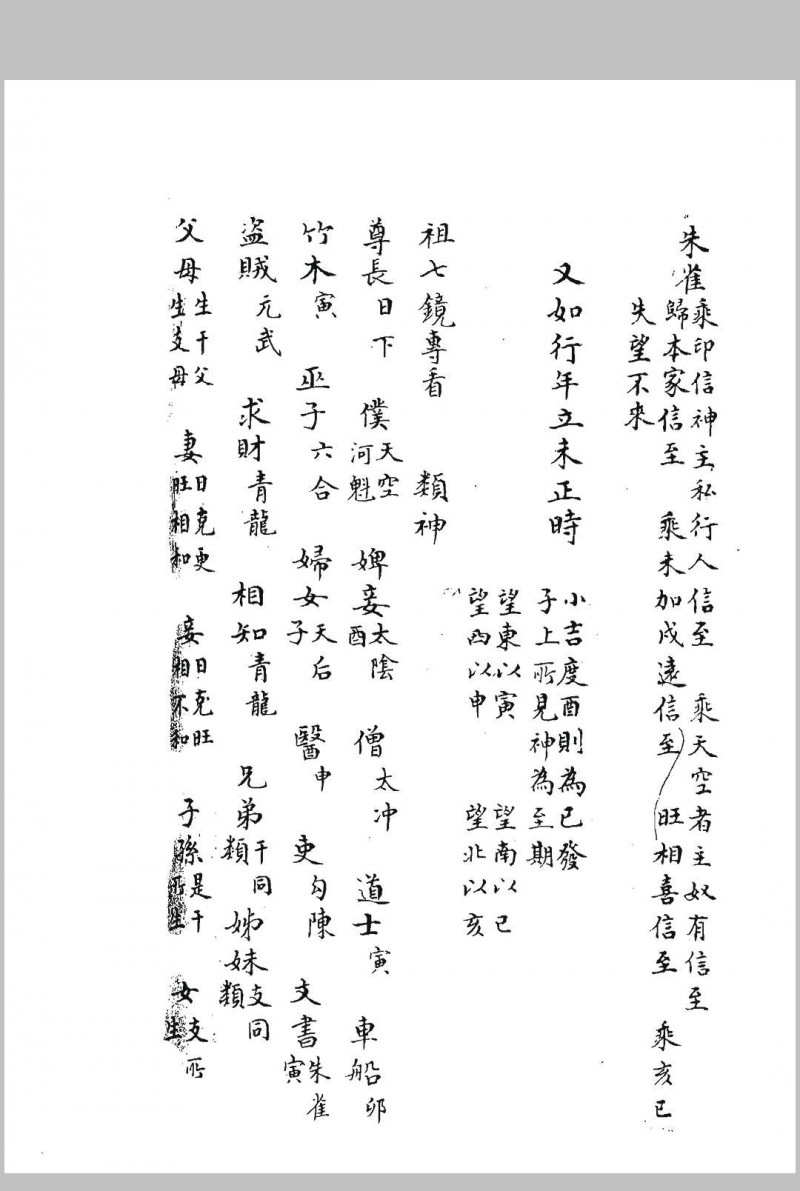 朱雀 乘印信神主私行人信至 乘天空者主奴有信至
歸本家信至 乘未加戌遠信至 旺相喜信至 乘亥巳
失望不來
又如行年立未正時 小吉度酉則為已發
子上所見神為至期
望東以寅 望南以巳
望西以申 望北以亥
祖七鏡專看 類神
尊長日下 僕天空河魁 婢妾太陰酉 僧太冲 道士寅 車船卯
竹木寅 巫子六合 婦女子天后 醫申 吏勾陳 文書朱雀寅
盜賊元武 求財青龍 相知青龍 兄弟干同類 姊妹支同類
父母生干父生支母 妻日克更旺相和 妾日克旺相不和 子孫是干所生 女支所生